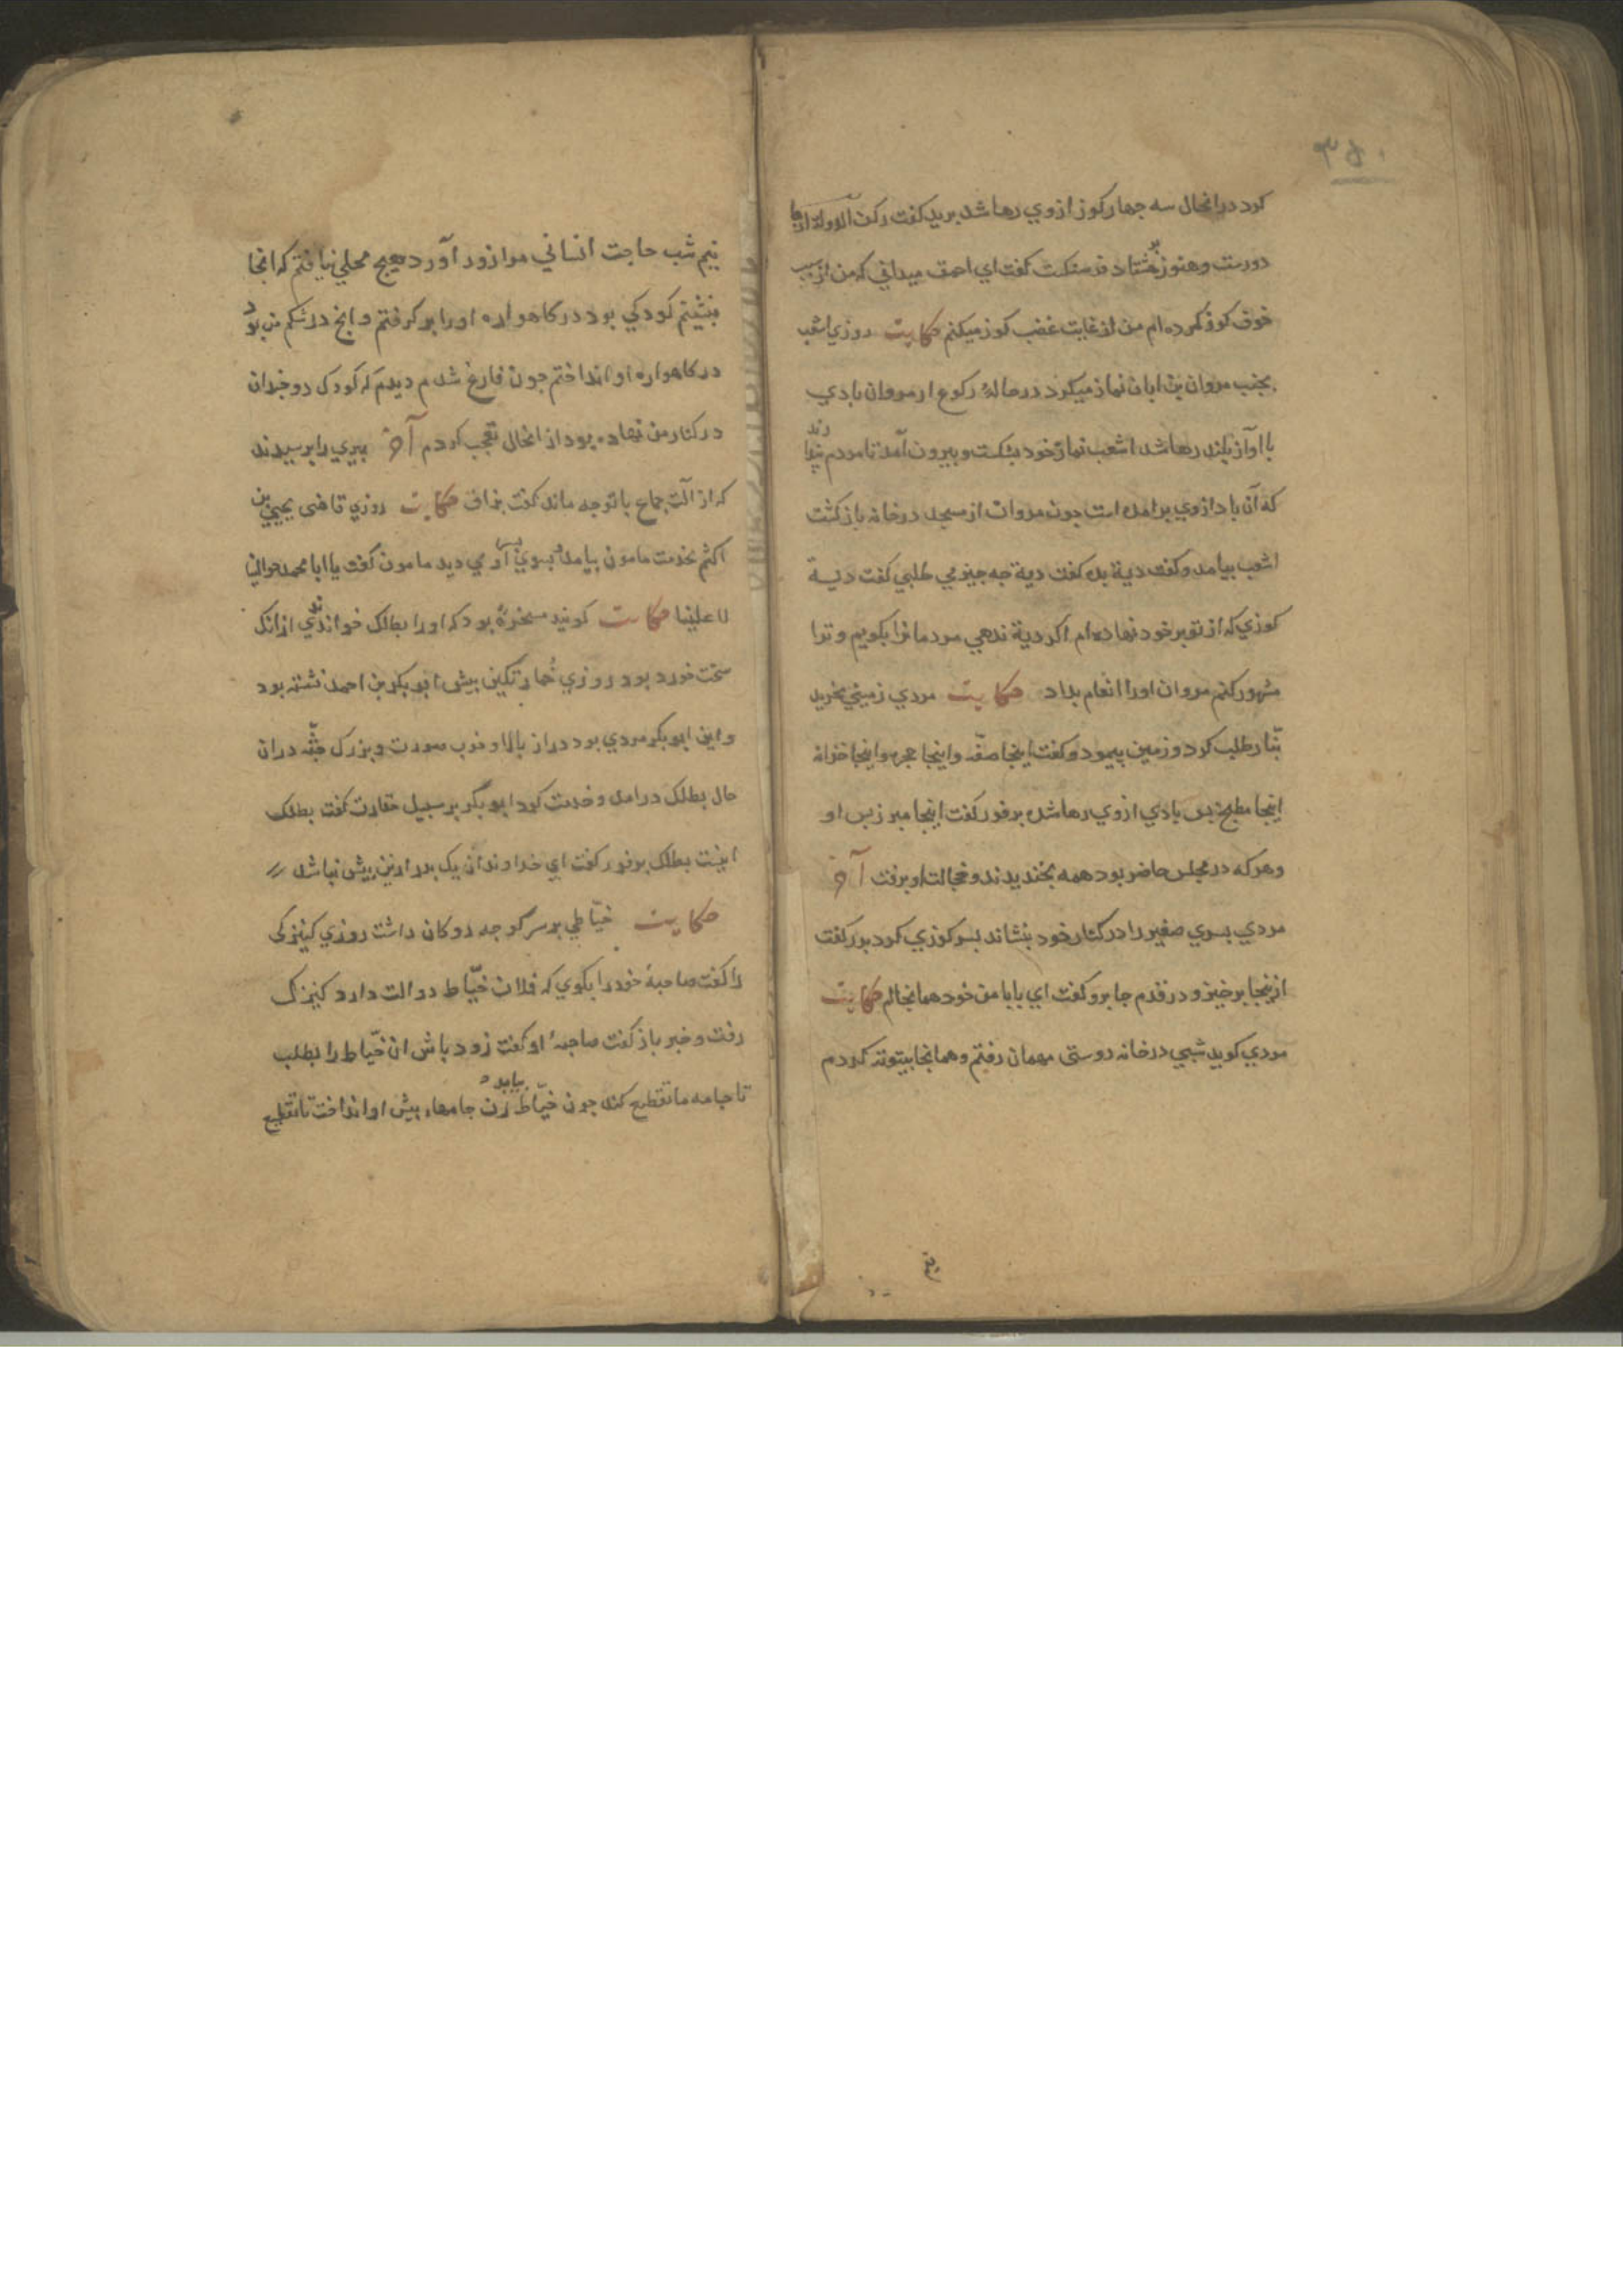 ۳۵۰
کرد درانحال سه جهار کوز ازوي رها شد برید کفت رکن الدوله ازما
دورست وهنوز هشتاد فرسنکست کفت اي احمق میداني که من از سبب
خوف کوز نکرده ام من از غایت غضب کوز میکنم حکایت روزي اشعب
بجنب مروان بن ابان نماز میکرد درحالهٔ رکوع از مروان بادي
با اواز بلند رها شد اشعب نماز خود بشکست وبیرون آمد تا مردم پندارند
که آن باد ازوي برامده است جون مروان از مسجد درخانه بازکشت
اشعب بیامد وکفت دیة بده کفت دیة جه جیز مي طلبي کفت دیة
کوزي که از تو برخود نهاده ام اکر دیة ندهي مردمانرا بکویم وترا
مشهور کنم مروان اورا انعام بداد حکایت مردي زمیني بخرید
بنّا را طلب کرد وزمین پیمود وکفت اینجا صفّه واینجا حجره واینجا خزانه
اینجا مطبخ پس بادي ازوي رها شد برفور کفت اینجا مبرز پس او
وهرکه درمجلس حاضر بود همه بخندیدند وخجالت او برفت آخر
مردي پسري صغیر را درکنار خود بنشاند پسر کوزي کرد پدر کفت
ازینجا برخیز ودر قدم جا برو کفت اي بابا من خود همانجاام حکایت
مردي کوید شبي درخانه دوستی مهمان رفتم وهمانجا بیتوته کردم
نیم
نیم شب حاجت انساني مرا زور آورد هیج محلي نیافتم که انجا
بنشینم کودکي بود درکاهواره اورا برکرفتم وانج درشکم من بود
درکاهواره او انداختم جون فارغ شدم دیدم که کودک دوجندان
درکنار من نهاده بود از انحال تعجب کردم آخر پیري را پرسیدند
که از الت جماع باتو جه ماند کفت بزاق حکایت روزي قاضی یحیی بن
اکثم بخدمت مامون بیامد بسوي پسر او مي دید مامون کفت یا ابا محمد حوالینا
لا علینا حکایت کویند مسخرهٔ بود که اورا بطلک خواندندي ازانک
سخت خورد بود روزي خمار تکین پیش ابو بکر بن احمد نشسته بود
واین ابو بکر مردي بود دراز بالا وخوب صورت وبزرک جثّه دران
حال بطلک درامد وخدمت کرد ابو بکر بر سبیل حقارت کفت بطلک
اینست بطلک برفور کفت اي خداوند از یک بدر ازین بیش نباشد
حکایت خیّاطي برسرکوجه دوکان داشت روزي کنیزکی
را کفت صاحبهٔ خودرا بکوي که فلان خیّاط دو الت دارد کنیزک
رفت وخبر باز کفت صاحبهٔ او کفت زود باش ان خیّاط را بطلب
تا جامه ما تقطیع کند جون خیّاط بیامد زن جامهاء پیش او انداخت تا تقطیع